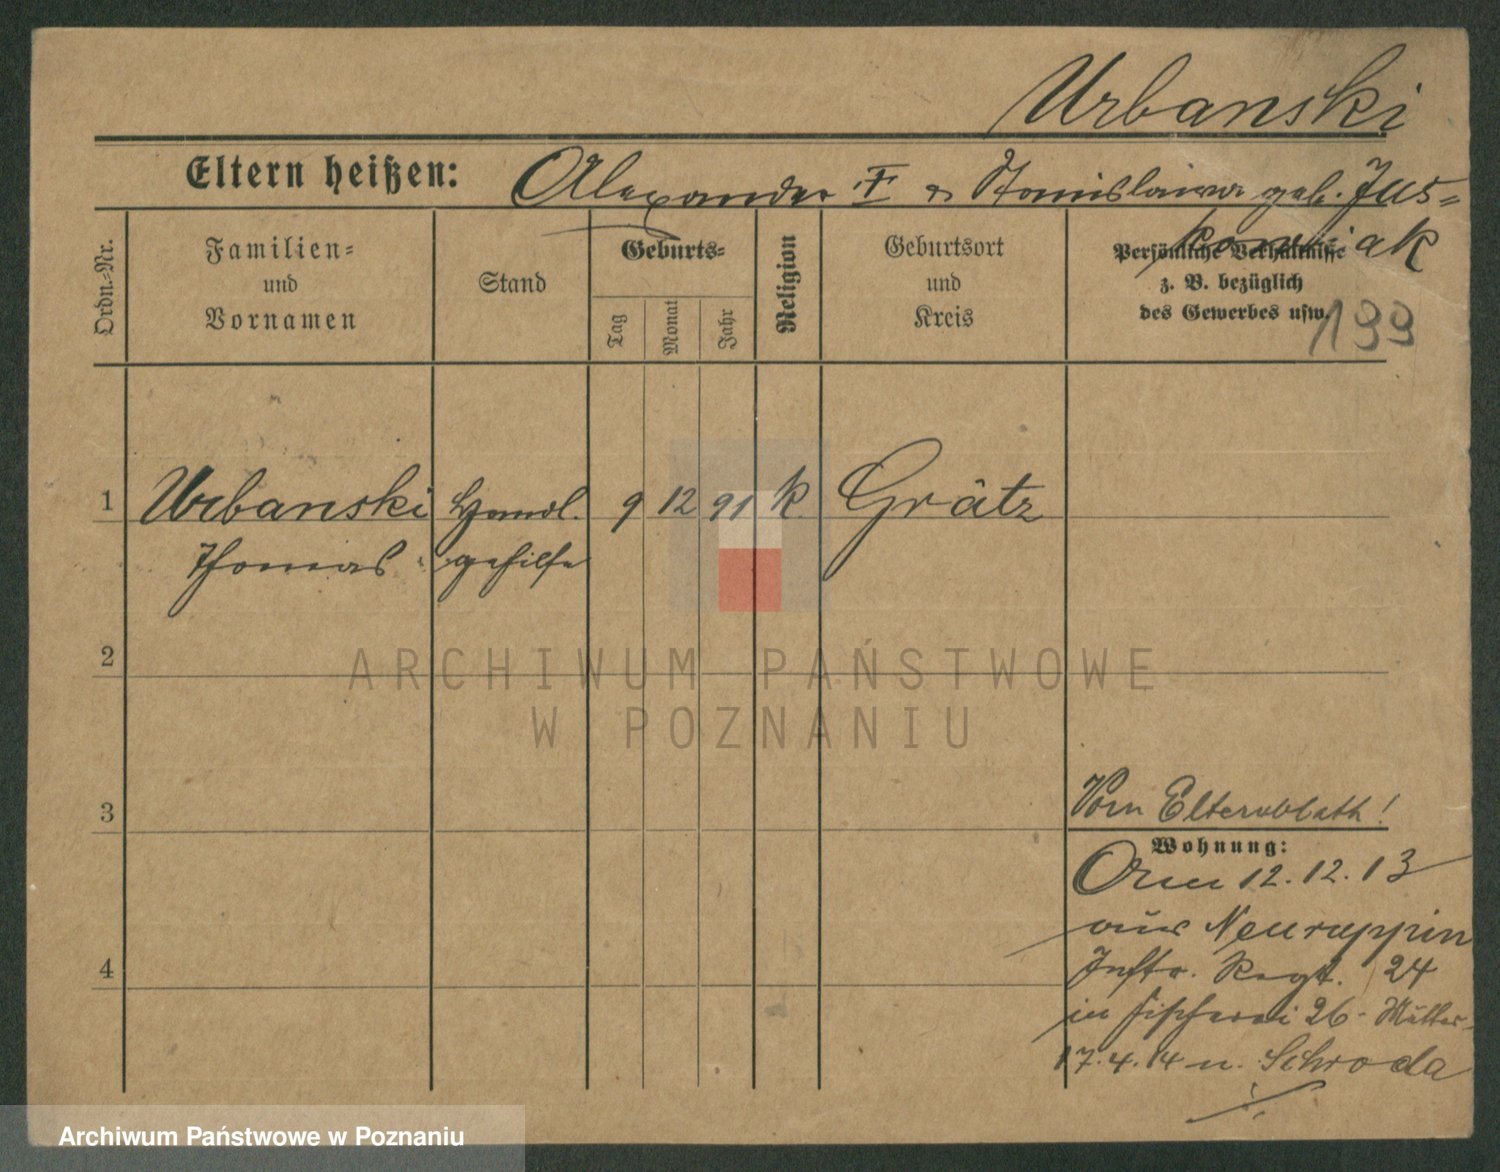 Urbanski
Eltern heißen: Alexander & Stanislawa geb. Jus=
kowiak
Ordn.=Nr.
Familien=
und
Vornamen
Stand
Geburts=
Tag
Monat
Jahr
Religion
Geburtsort
und
Kreis
Persönliche Verhältnisse
z. B. bezüglich
des Gewerbes usw.
199
1 Urbanski Handl. 9 12 91 k. Grätz
Thomas gehilfe
2
ARCHIWUM PAŃSTWOWE
W POZNANIU
3
Vom Elternblatt!
Wohnung:
Am 12.12.13
aus Neuruppin
Inftr. Regt. 24
4
in Fischerei 26 - Mutter
17.4.14 n. Schroda
Archiwum Państwowe w Poznaniu